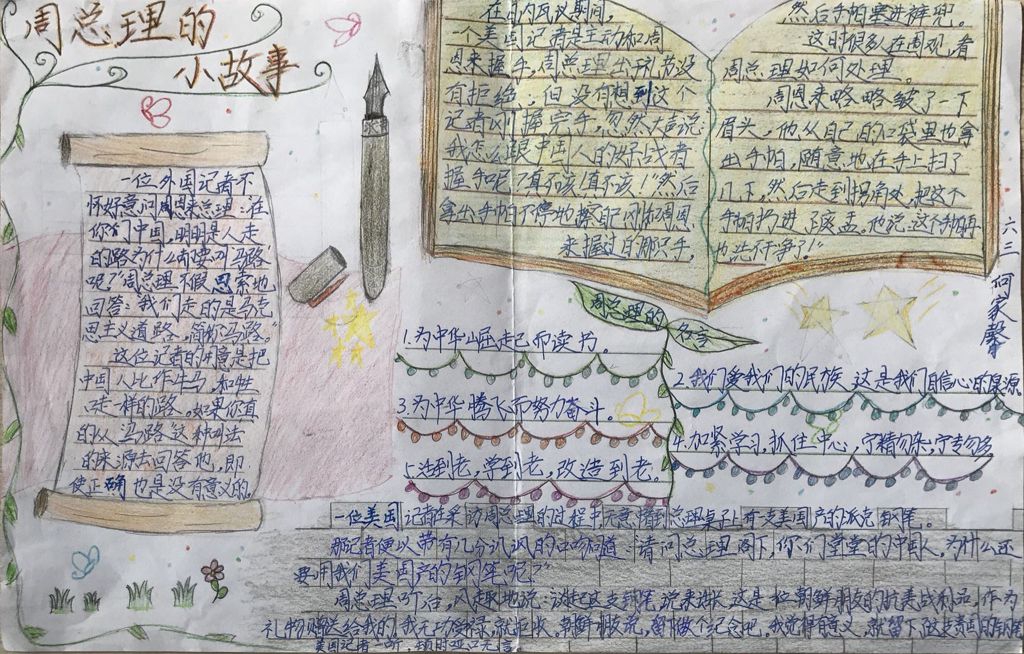 周总理的
小故事
一位外国记者不
怀好意问周恩来总理:"在
你们中国,明明是人走
的路为什么却要叫'马路'
呢?"周总理不假思索地
回答:"我们走的是马克
思主义道路,简称马路。"
这位记者的用意是把
中国人比作牛马,和牲
口走一样的路。如果你真
的从"马路"这种叫法
的来源去回答他,即
使正确也是没有意义的。
在日内瓦议期间,
一个美国记者先主动和周
恩来握手,周总理出于礼节没
有拒绝,但没有想到这个
记者刚握完手,忽然大声说:
"我怎么跟中国人的好战者
握手呢?真不该!真不该!"然后
拿出手帕不停地擦自己刚和周恩
来握过的那只手,
然后手帕塞进裤兜。
这时很多人在围观,看
周总理如何处理。
周恩来略略皱了一下
眉头,他从自己的口袋里也拿
出手帕,随意地在手上扫了
几下,然后走到拐角处,把这个
手帕扔进了痰盂。他说:"这个手帕再
也洗不干净了!"
六三 何家馨
周总理的名言
1.为中华崛起而读书。
2.我们爱我们的民族,这是我们自信心的泉源。
3.为中华腾飞而努力奋斗。
4.加紧学习,抓住中心,宁精勿杂,宁专勿多。
5.活到老,学到老,改造到老。
一位美国记者在采访周总理的过程中无意看到总理桌子上有支美国产的派克钢笔。
那记者便以带有几分讥讽的口吻问道:"请问总理阁下,你们堂堂的中国人,为什么还
要用我们美国产的钢笔呢?"
周总理听后,风趣地说:"谈起这支钢笔,说来话长,这是一位朝鲜朋友的抗美战利品,作为
礼物赠送给我的。我无功受禄,就拒收。朝鲜朋友说,留下做个纪念吧。我觉得有意义,就留下了这支贵国的钢笔
美国记者一听,顿时哑口无言。